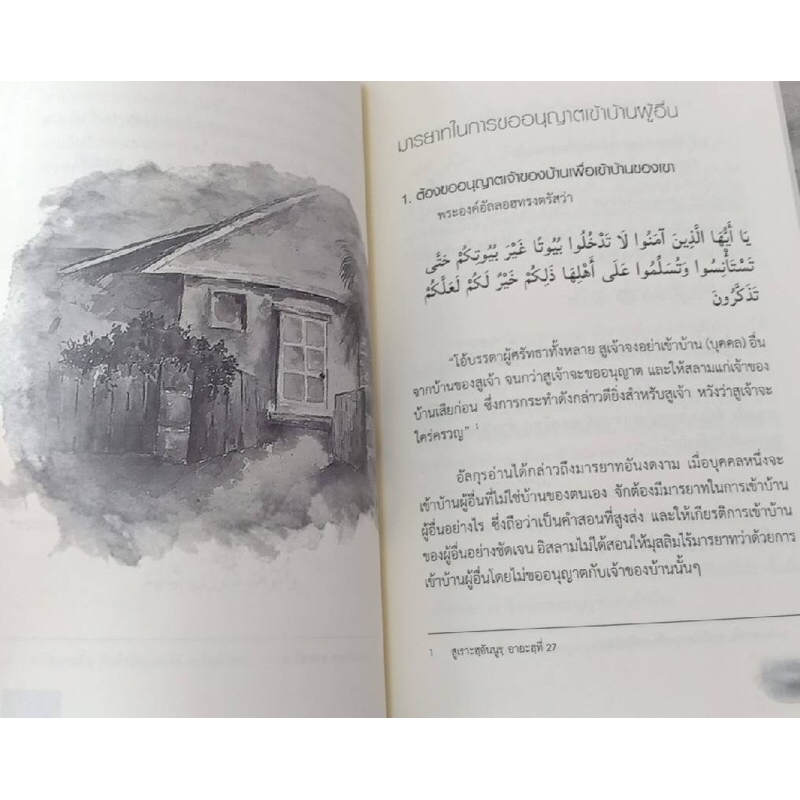 มารยาทในการขออนุญาตเข้าบ้านผู้อื่น
1. ต้องขออนุญาตเจ้าของบ้านเพื่อเข้าบ้านของเขา
พระองค์อัลลอฮทรงตรัสว่า
يَا أَيُّهَا الَّذِينَ آمَنُوا لَا تَدْخُلُوا بُيُوتًا غَيْرَ بُيُوتِكُمْ حَتَّى
تَسْتَأْنِسُوا وَتُسَلِّمُوا عَلَى أَهْلِهَا ذَلِكُمْ خَيْرٌ لَكُمْ لَعَلَّكُمْ
تَذَكَّرُونَ
“โอ้บรรดาผู้ศรัทธาทั้งหลาย สูเจ้าจงอย่าเข้าบ้าน (บุคคล) อื่น
จากบ้านของสูเจ้า จนกว่าสูเจ้าจะขออนุญาต และให้สลามแก่เจ้าของ
บ้านเสียก่อน ซึ่งการกระทำดังกล่าวดียิ่งสำหรับสูเจ้า หวังว่าสูเจ้าจะ
ใคร่ครวญ” 1
อัลกุรอ่านได้กล่าวถึงมารยาทอันงดงาม เมื่อบุคคลหนึ่งจะ
เข้าบ้านผู้อื่นที่ไม่ใช่บ้านของตนเอง จักต้องมีมารยาทในการเข้าบ้าน
ผู้อื่นอย่างไร ซึ่งถือว่าเป็นคำสอนที่สูงส่ง และให้เกียรติการเข้าบ้าน
ของผู้อื่นอย่างชัดเจน อิสลามไม่ได้สอนให้มุสลิมไร้มารยาทว่าด้วยการ
เข้าบ้านผู้อื่นโดยไม่ขออนุญาตกับเจ้าของบ้านนั้นๆ
1 สูเราะฮฺอันนูรฺ อายะฮฺที่ 27